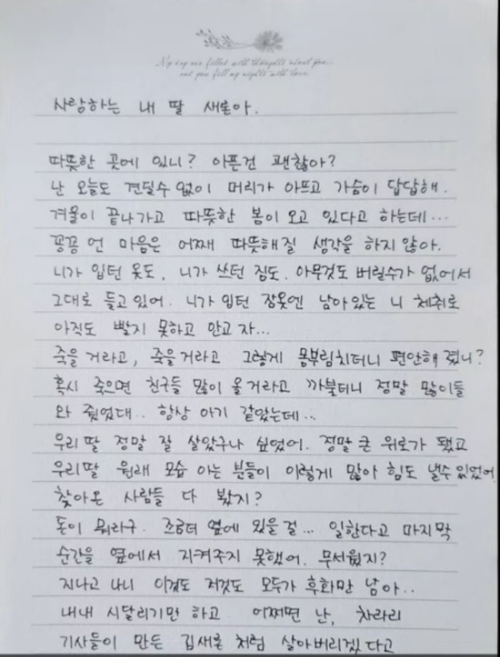 My day are filled with thoughts about you..
and you fill my nights with love.
사랑하는 내 딸 새론아.
따뜻한 곳에 있니? 아픈건 괜찮아?
난 오늘도 견딜수 없이 머리가 아프고 가슴이 답답해.
겨울이 끝나가고 따뜻한 봄이 오고 있다고 하는데...
꽁꽁 언 마음은 어째 따뜻해질 생각을 하지 않아.
니가 입던 옷도, 니가 쓰던 짐도. 아무것도 버릴수가 없어서
그대로 들고있어. 니가 입던 잠옷엔 남아있는 니 체취로
아직도 빨지 못하고 안고 자...
죽을 거라고, 죽을거라고 그렇게 몸부림치더니 편안해 졌니?
혹시 죽으면 친구들 많이 올거라고 까불더니 정말 많이들
와 줬었대.. 항상 아기 같았는데...
우리딸 정말 잘 살았구나 싶었어. 정말 큰 위로가 됐고
우리딸 원래 모습 아는 분들이 이렇게 많아 힘도 낼수 있었어
찾아온 사람들 다 봤지?
돈이 뭐라구. 조금더 옆에 있을 걸... 일한다고 마지막
순간을 옆에서 지켜주지 못했어. 무서웠지?
지나고 나니 이것도 저것도 모두가 후회만 남아..
내내 시달리기만 하고 어쩌면 난, 차라리
기사들이 만든 김새론 처럼 살아버리겠다고